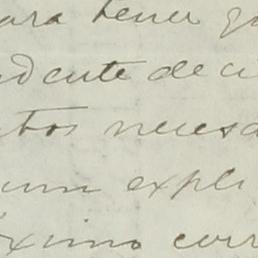 ara tener q
dente de ci
tos neces
um expli
óximo corr